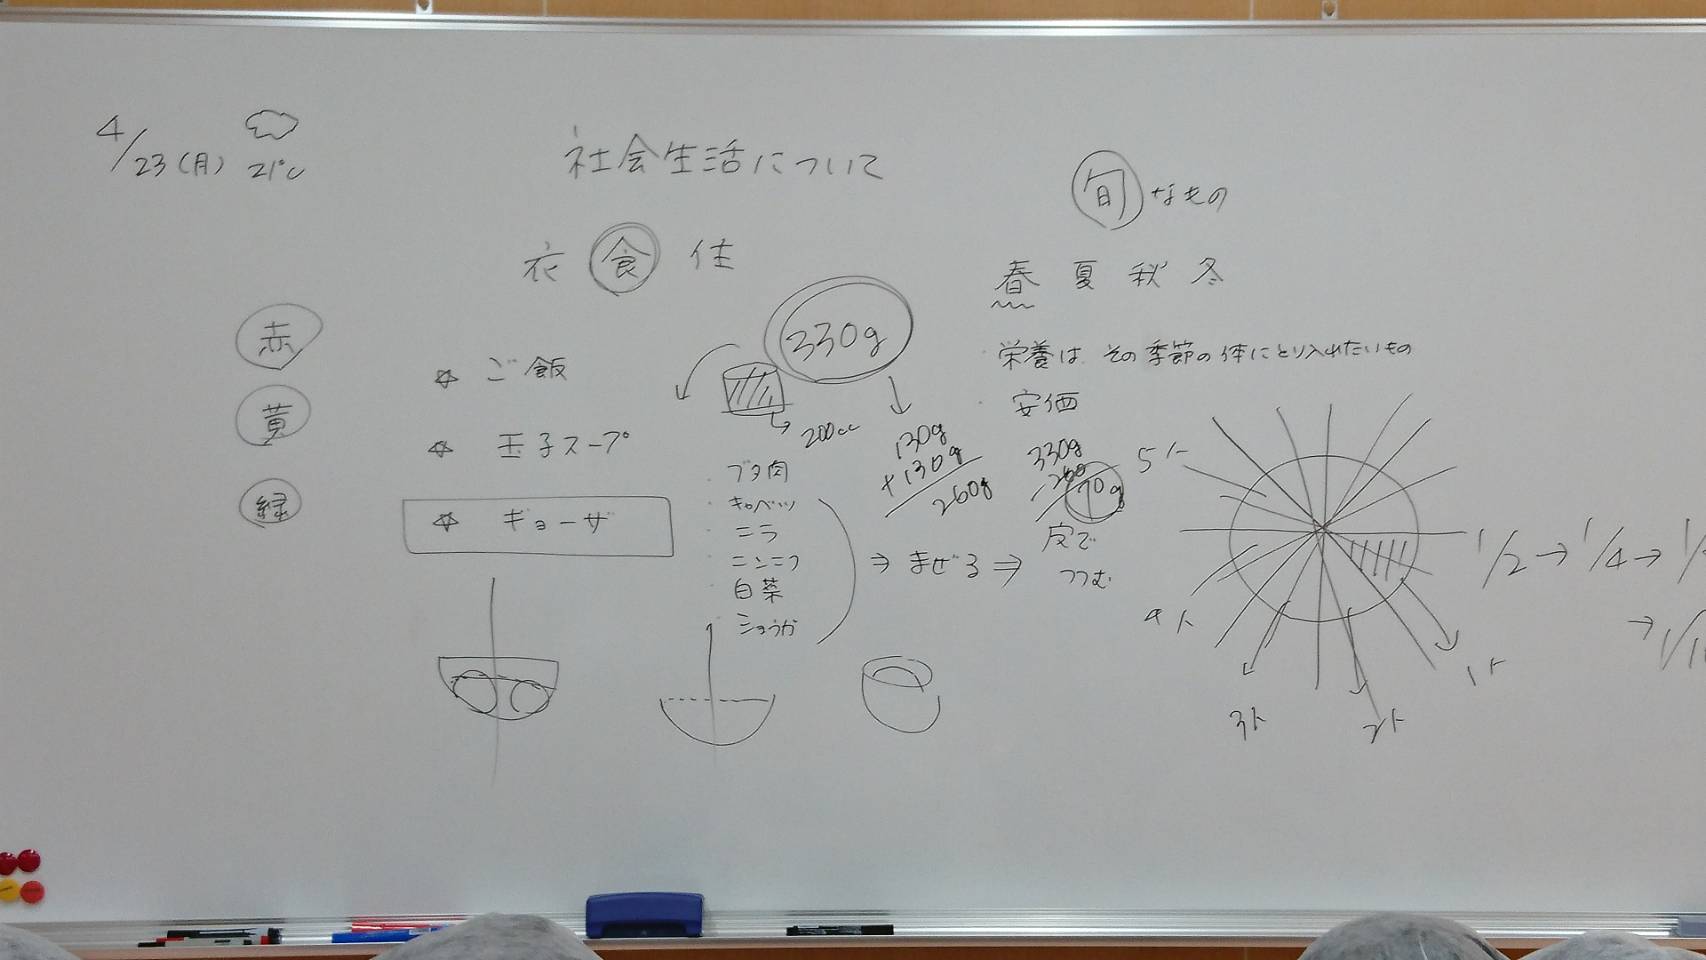 4/23(月) 21℃
社会生活について
衣 食 住
赤
黄
緑
☆ ご飯
☆ 玉子スープ
☆ ギョーザ
330g
200cc
・ブタ肉
・キャベツ
・ニラ
・ニンニク
・白菜
・ショウガ
⇒ まぜる ⇒ 皮で
つつむ
130g
+130g
260g
旬なもの
春 夏 秋 冬
・栄養は その季節の体にとり入れたいもの
・安価
330g
-260
70g
1/2→1/4→